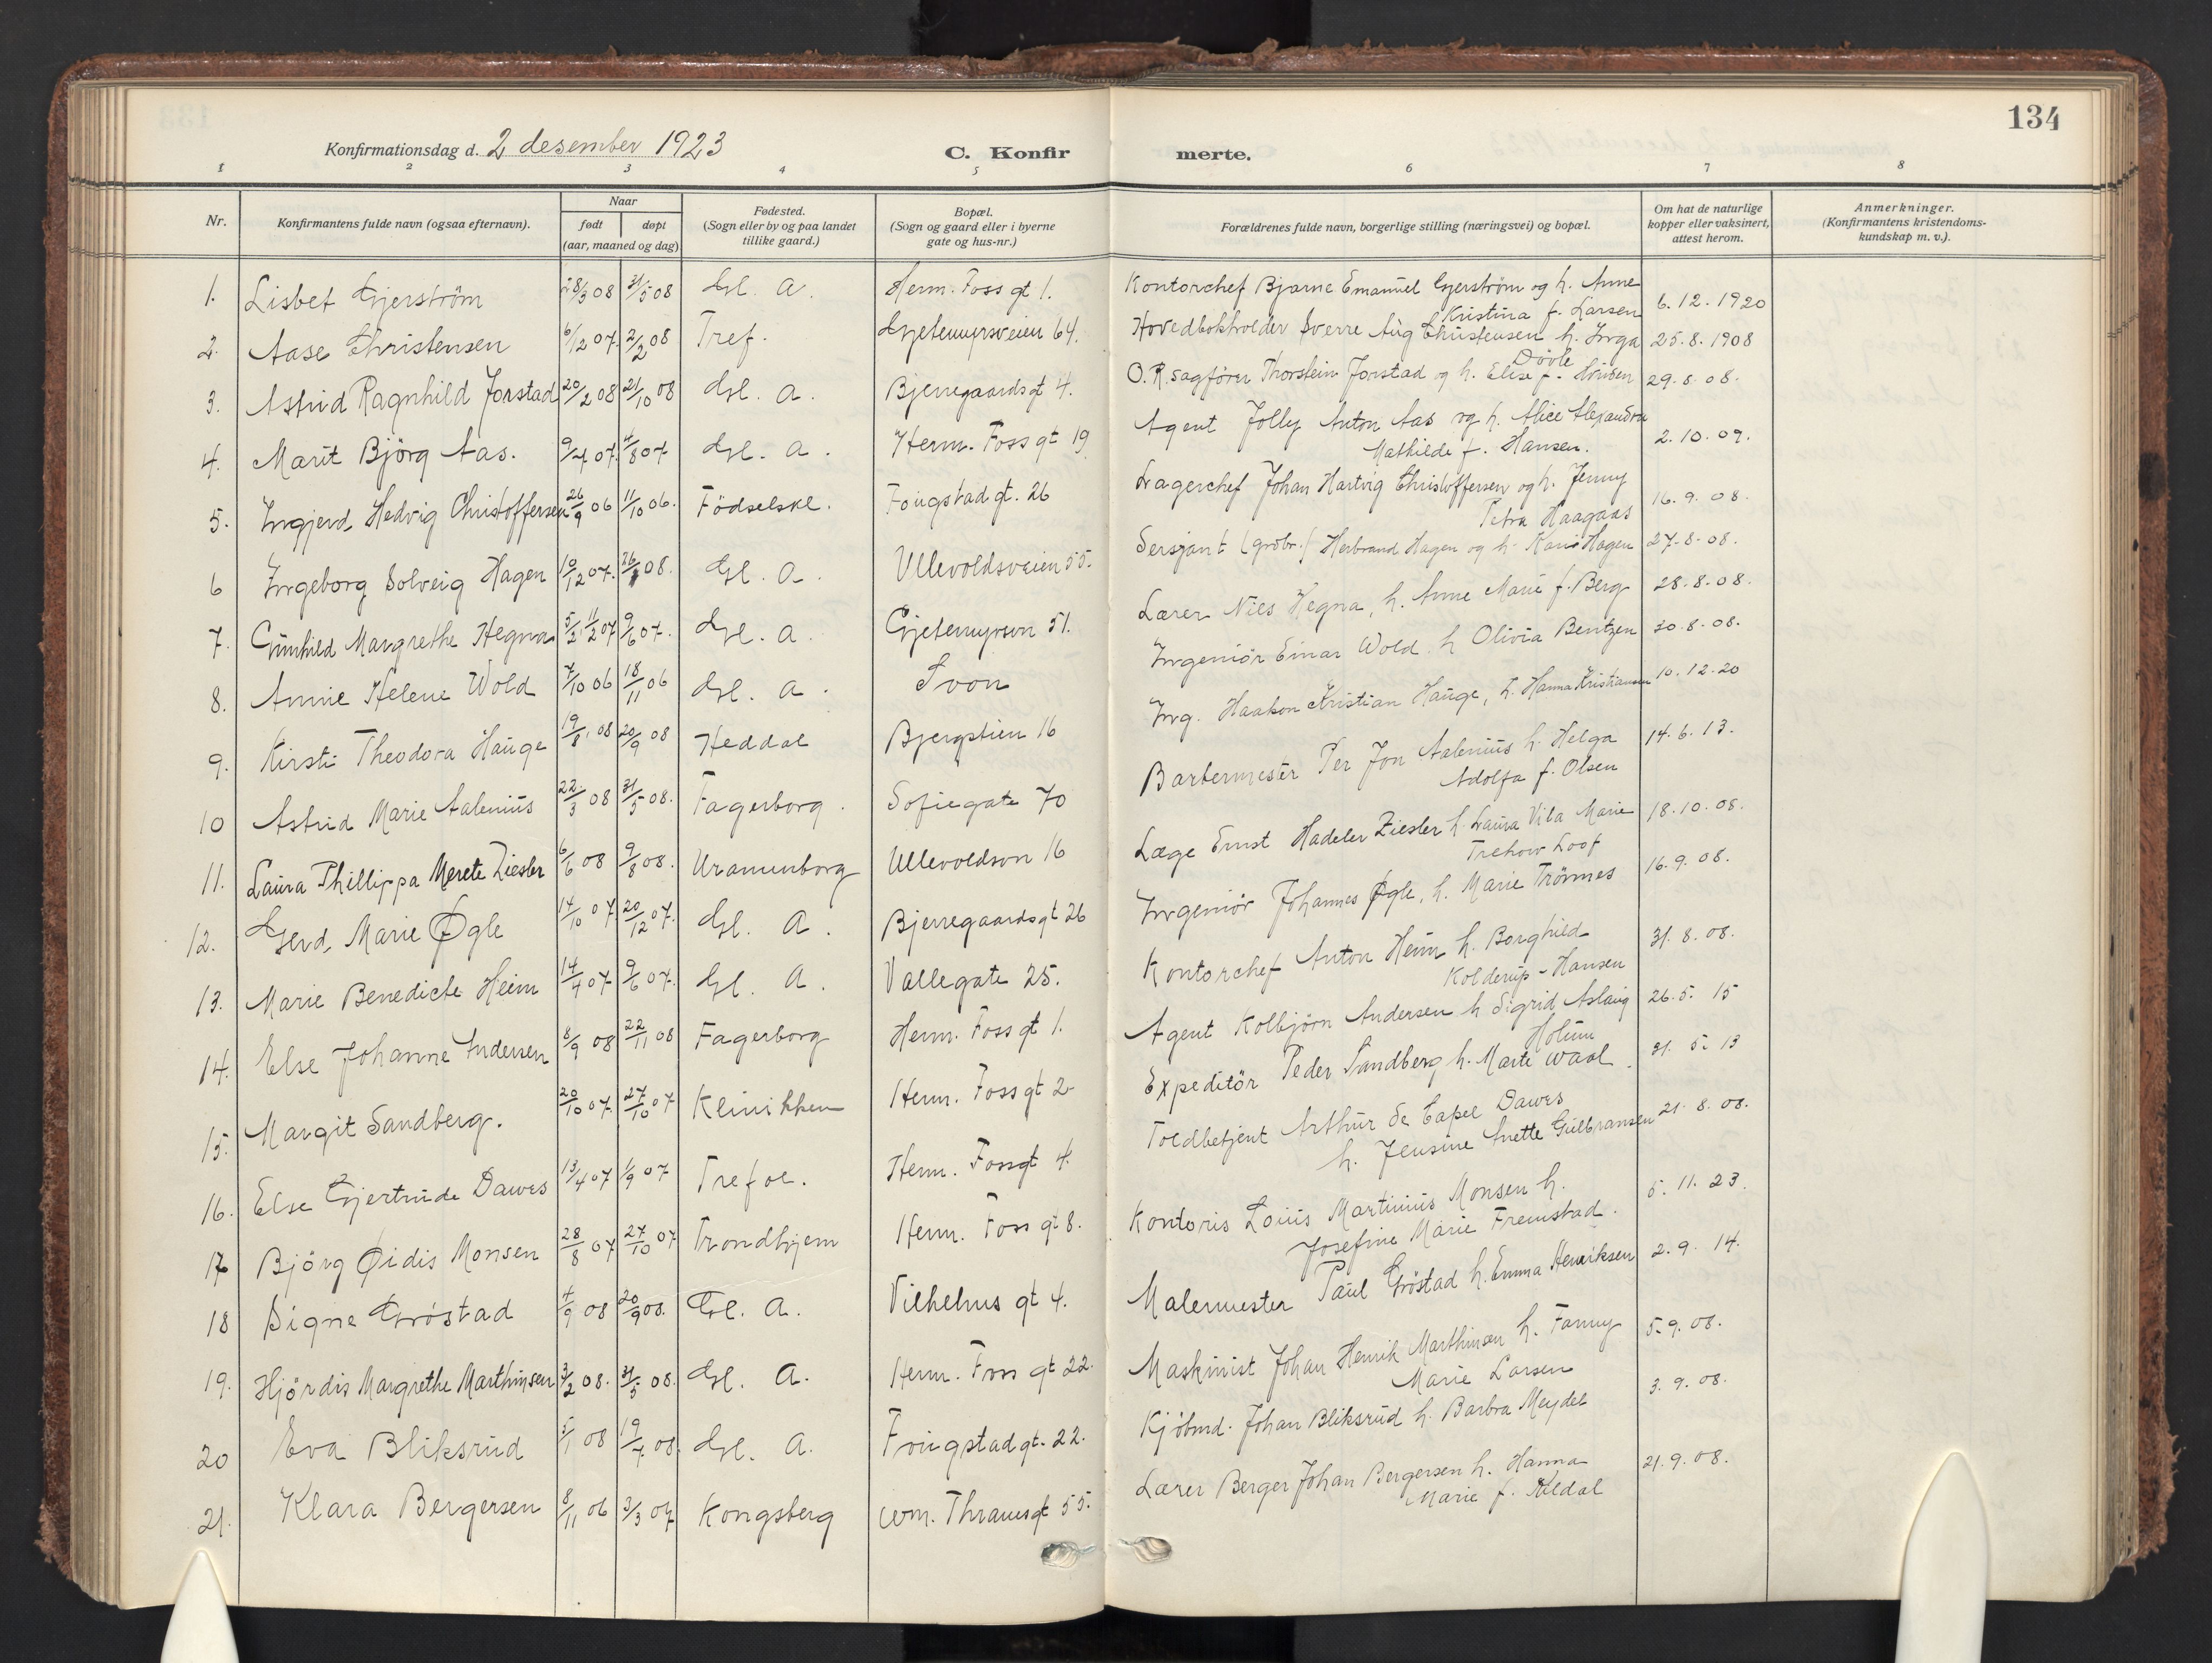 134
Konfirmationsdag d. 2 desember 1923
C. Konfir merte.
1 2 3 4 5 6 7 8
Nr.
Konfirmantens fulde navn (ogsaa efternavn).
Naar
født døpt
(aar, maaned og dag)
Fødested.
(Sogn eller by og paa landet
tillike gaard.)
Bopæl.
(Sogn og gaard eller i byerne
gate og hus-nr.)
Forældrenes fulde navn, borgerlige stilling (næringsvei) og bopæl.
Om hat de naturlige
kopper eller vaksinert,
attest herom.
Anmerkninger.
(Konfirmantens kristendoms-
kundskap m. v.).
1. Lisbet Gjerström 28/3 08 31/5 08 Gl. A. Herm. Foss gt 1. Kontorchef Bjarne Emanuel Gjerström og h. Anne
Kristina f. Larsen 6.12.1920
2. Aase Christensen 6/12 07. 2/2 08 Tref. Gjetemyrsveien 64. Hovedbokholder Sverre Aug Christensen h. Inga
Dövle 25.8.1908
3. Astrid Ragnhild Jorstad 20/2 08 21/10 08 Gl. a. Bjerregaardsgt 4. O.R.sagförer Thorstein Jorstad og h. Elise f. 29.8.08.
4. Marit Björg Aas. 9/4 07. 4/8 07 Gl. a. Herm. Foss gt 19 Agent Jolly Anton Aas og h. Alice Alexandra
Mathilde f. Hansen. 2.10.09.
5. Ingjerd Hedvig Christoffersen 26/9 06 11/10 06. Födselskl. Fougstadgt. 26 Lagerchef Johan Hartvig Christoffersen og h. Jenny
Petra Haagaas 16.9.08.
6 Ingeborg Solveig Hagen 10/12 07. 26/ 08. Gl. a. Ullevoldsveien 55. Sersjant (grobr.) Herbrand Hagen og h. Kari Hagen 27.8.08.
7. Gunhild Margrethe Hegna 5/2 11/2 07 9/6 07. Gl. a. Gjetemyrsvn 51. Lærer Nils Hegna, h. Anne Marie f. Berg 28.8.08.
8. Annie Helene Wold 7/10 06 18/11 06 Gl. a. Ingeniör Einar Wold h Olivia Bentzen 30.8.08.
9. Kirsti Theodora Hauge 19/8 08 20/9 08 Heddal Bjergstien 16 Ing. Haakon Kristian Hauge, h. Hanna Kristiansen 10.12.20
10 Astrid Marie Aalenius 22/3 08 31/5 08. Fagerborg. Sofiegate 70 Barbermester Per Jon Aalenius h. Helga
Adolfa f. Olsen 14.6.13.
11. Laura Phillippa Merete Ziesler 6/6 08 9/8 08. Uranienborg Ullevoldsvn 16 Læge Ernst Hadeler Ziesler h. Laura Vita Marie
Trehow Loof 18.10.08.
12. Gerd Marie Øgle 14/10 07 20/12 07. Gl. A. Bjerregaardsgt 26 Ingeniör Johannes Øgle, h. Marie Trönnes 16.9.08.
13. Marie Benedicte Heim 14/4 07 9/6 07. Gl. A. Vallegate 25. Kontorchef Anton Heim h. Borghild
Kolderup-Hansen 31.8.08.
14. Else Johanne Andersen 8/9 08 22/11 08 Fagerborg Herm. Foss gt 1. Agent Kolbjörn Andersen h Sigrid Aslaug
Holum 26.5.15
15. Margit Sandberg. 20/10 07. 27/10 07 Klinikken Herm. Foss gt 2 Expeditör Peder Sandberg h. Marte Waal. 31.5.13
16. Else Gjertrude Dawes 13/4 07 1/9 07 Trefol. Herm. Fossgt 4. Toldbetjent Arthur de Capel Dawes
h. Jensine Anette Gulbransen 21.8.08.
17 Björg Øidis Monsen 28/8 07 27/10 07 Trondhjem Herm. Foss gt 8. Kontoris Louis Martinius Monsen h.
Josefine Marie Fremstad. 5.11.23.
18 Signe Gröstad 4/9 08 20/9 08. Gl. A. Vilhelms gt 4. Malermester Paul Gröstad h. Emma Henriksen 2.9.14.
19. Hjördis Margrethe Marthinsen 3/2 08. 31/5 08. Gl. A. Herm. Foss gt 22. Maskinist Johan Henrik Marthinsen h. Fanny
Marie Larsen 5.9.08.
20 Eva Bliksrud 5/1 08 19/4 08. Gl. A. Fougstadgt. 22. Kjöbmd. Johan Bliksrud h. Barbra Meydel 3.9.08.
21. Klara Bergersen 8/11 06 3/3 07 Kongsberg Wm. Thranesgt 55. Lærer Berger Johan Bergersen h. Hanna
Marie f. Koldal 21.9.08.